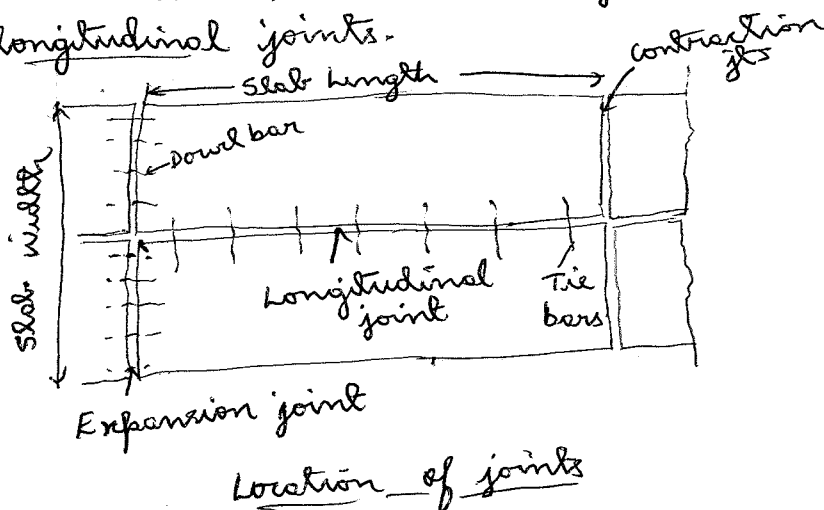 longitudinal joints.
contraction
jts
Slab length
Dowl bar
Slab width
Longitudinal
joint
Tie
bars
Expansion joint
Location of joints